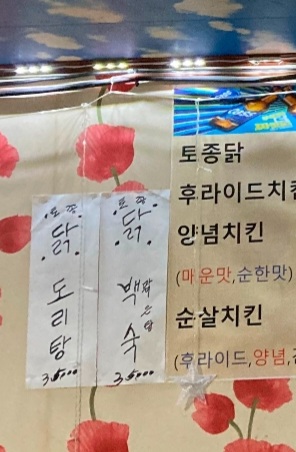 토종
닭
도리탕
35000
토종
닭
백숙
35000
토종닭
후라이드치킨
양념치킨
(매운맛,순한맛)
순살치킨
(후라이드,양념,